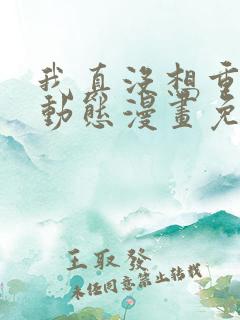 我真没想重
動態漫畫免
王取發
未经同意禁止转载